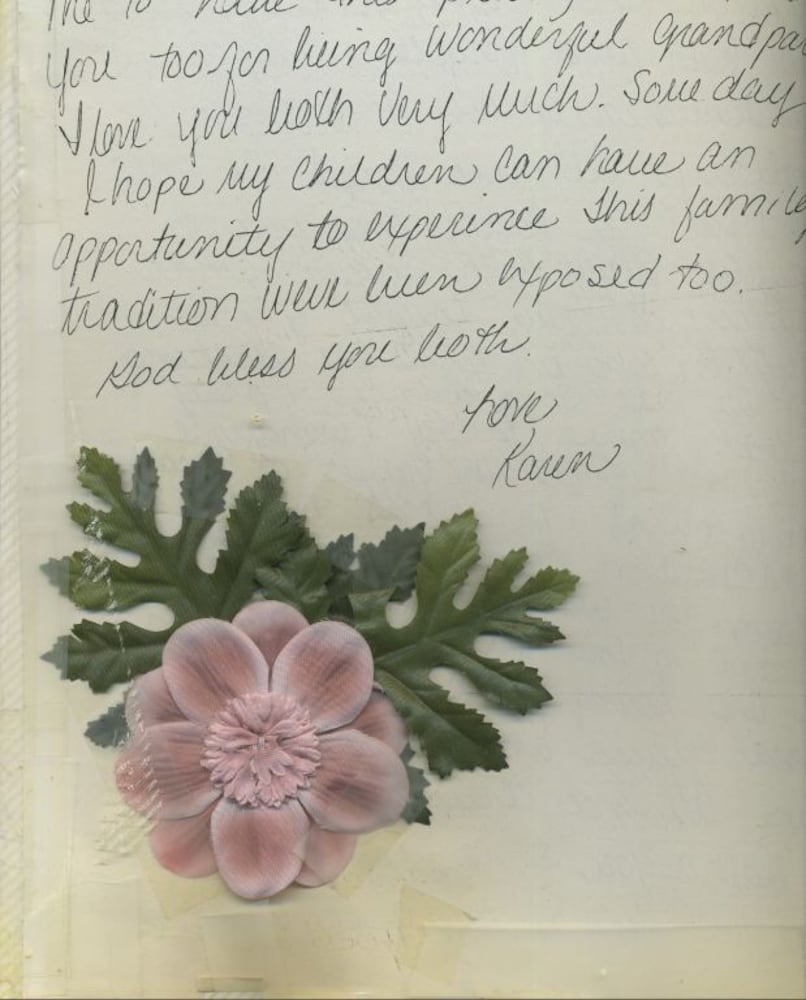 me to have this
you too for being wonderful grandpa
I love you both very much. Some day
I hope my children can have an
opportunity to experience this family
tradition weve been exposed too.
God bless you both.
Love
Karen